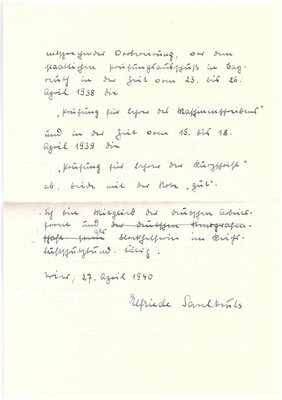 entsprechender Vorbereitung, vor dem
staatlichen Prüfungsausschuß in Bay-
reuth in der Zeit vom 23. bis 26.
April 1938 die
„Prüfung für Lehrer des Maschinenschreibens"
und in der Zeit vom 15. bis 18.
April 1939 die
„Prüfung für Lehrer der Kurzschrift"
ab, beide mit der Note „gut".
Ich bin Mitglied der deutschen Arbeits-
front und der deutschen Stenografen-
schaft sowie als Blockhelferin im Reichs-
luftschutzbund tätig.
27. April 1940
Elfriede